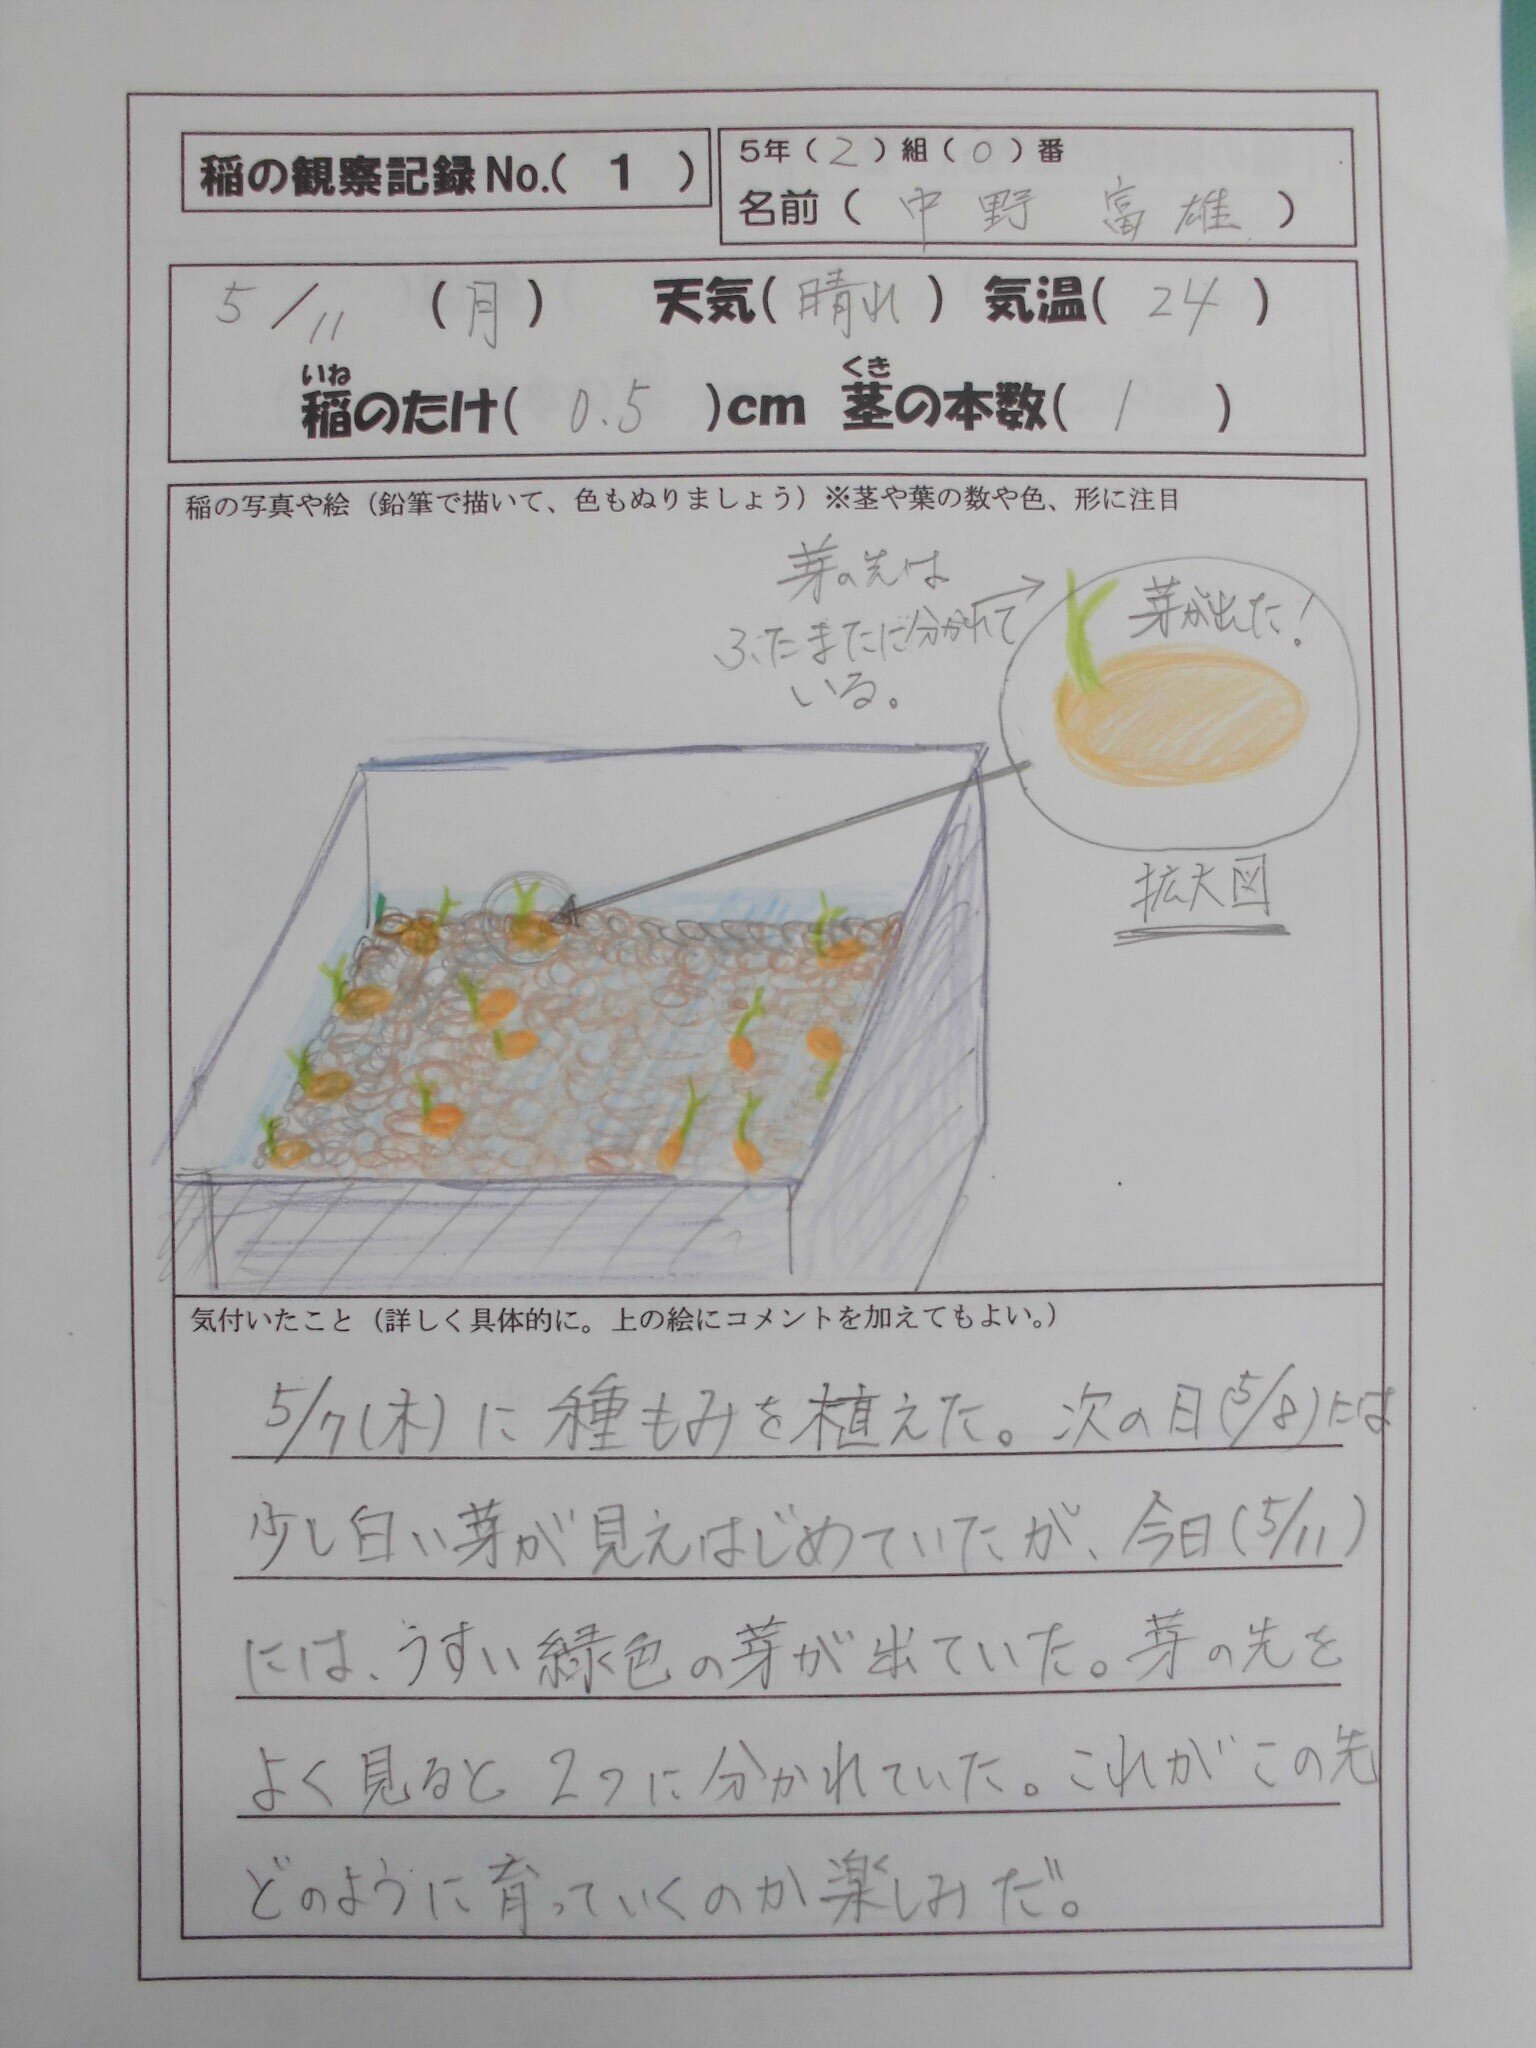 稲の観察記録No.( 1 )
5年(2)組(0)番
名前( 中野 富雄 )
5/11 (月) 天気(晴れ) 気温(24)
いね くき
稲のたけ( 0.5 )cm 茎の本数( 1 )
稲の写真や絵(鉛筆で描いて、色もぬりましょう)※茎や葉の数や色、形に注目
芽の先は
ふたまたに分かれて
いる。
芽が出た!
拡大図
気付いたこと(詳しく具体的に。上の絵にコメントを加えてもよい。)
5/7(木)に種もみを植えた。次の日(5/8)には
少し白い芽が見えはじめていたが、今日(5/11)
には、うすい緑色の芽が出ていた。芽の先を
よく見ると2つに分かれていた。これがこの先
どのように育っていくのか楽しみだ。